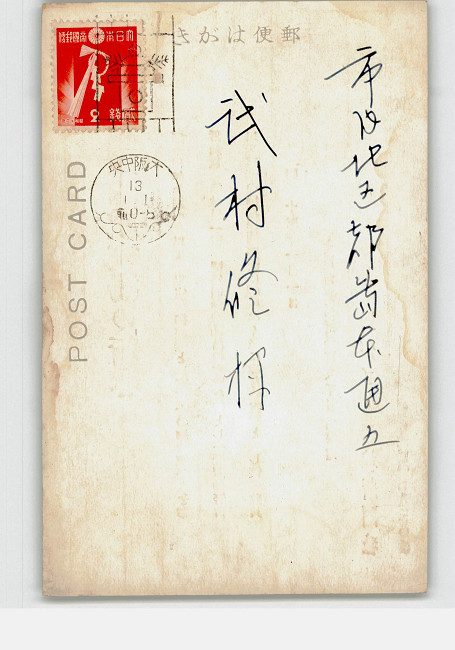 郵便はがき
大日本帝國郵便
2
POST CARD
大阪中央
13
1.1
前0-8
市内北区都島本通五
武村修様